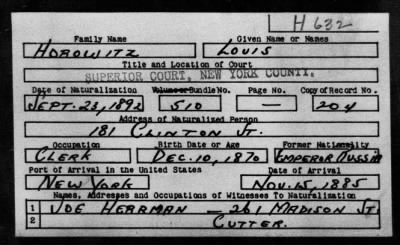 H 632
Family Name Given Name or Names
HOROWITZ LOUIS
Title and Location of Court
SUPERIOR COURT, NEW YORK COUNTY.
Date of Naturalization Volume or Bundle No. Page No. Copy of Record No.
SEPT. 23, 1892 510 — 204
Address of Naturalized Person
181 CLINTON ST.
Occupation Birth Date or Age Former Nationality
CLERK DEC. 10, 1870 EMPEROR RUSSIA
Port of Arrival in the United States Date of Arrival
NEW YORK NOV. 15, 1885
Names, Addresses and Occupations of Witnesses To Naturalization
1 JOE HERRMAN — 261 MADISON ST
2 CUTTER.